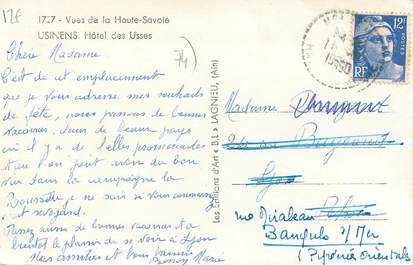 12F
1727 - Vues de la Haute-Savoie
USINENS Hôtel des Usses
74
Chère Madame
C'est de cet emplacement
que je vous adresse mes souhaits
de fête, nous passons de bonnes
vacances, dans de beaux pays
où il y a de belles promenades
et où l'on peut boire du bon
vin dans la campagne la
Roussette je ne sais si vous connaissez
et
Passez aussi de bonnes vacances et à
bientôt le plaisir de se voir à Lyon
Mes amitiés et bons baisers
Marie
Les Editions d'Art « B.I. » LAGNIEU, (Ain)
12F
POSTES
RF
1950
Madame
rue Bugeaud
Lyon
rue Mirabeau
Banyuls s/Mer
(Pyrénées orientales